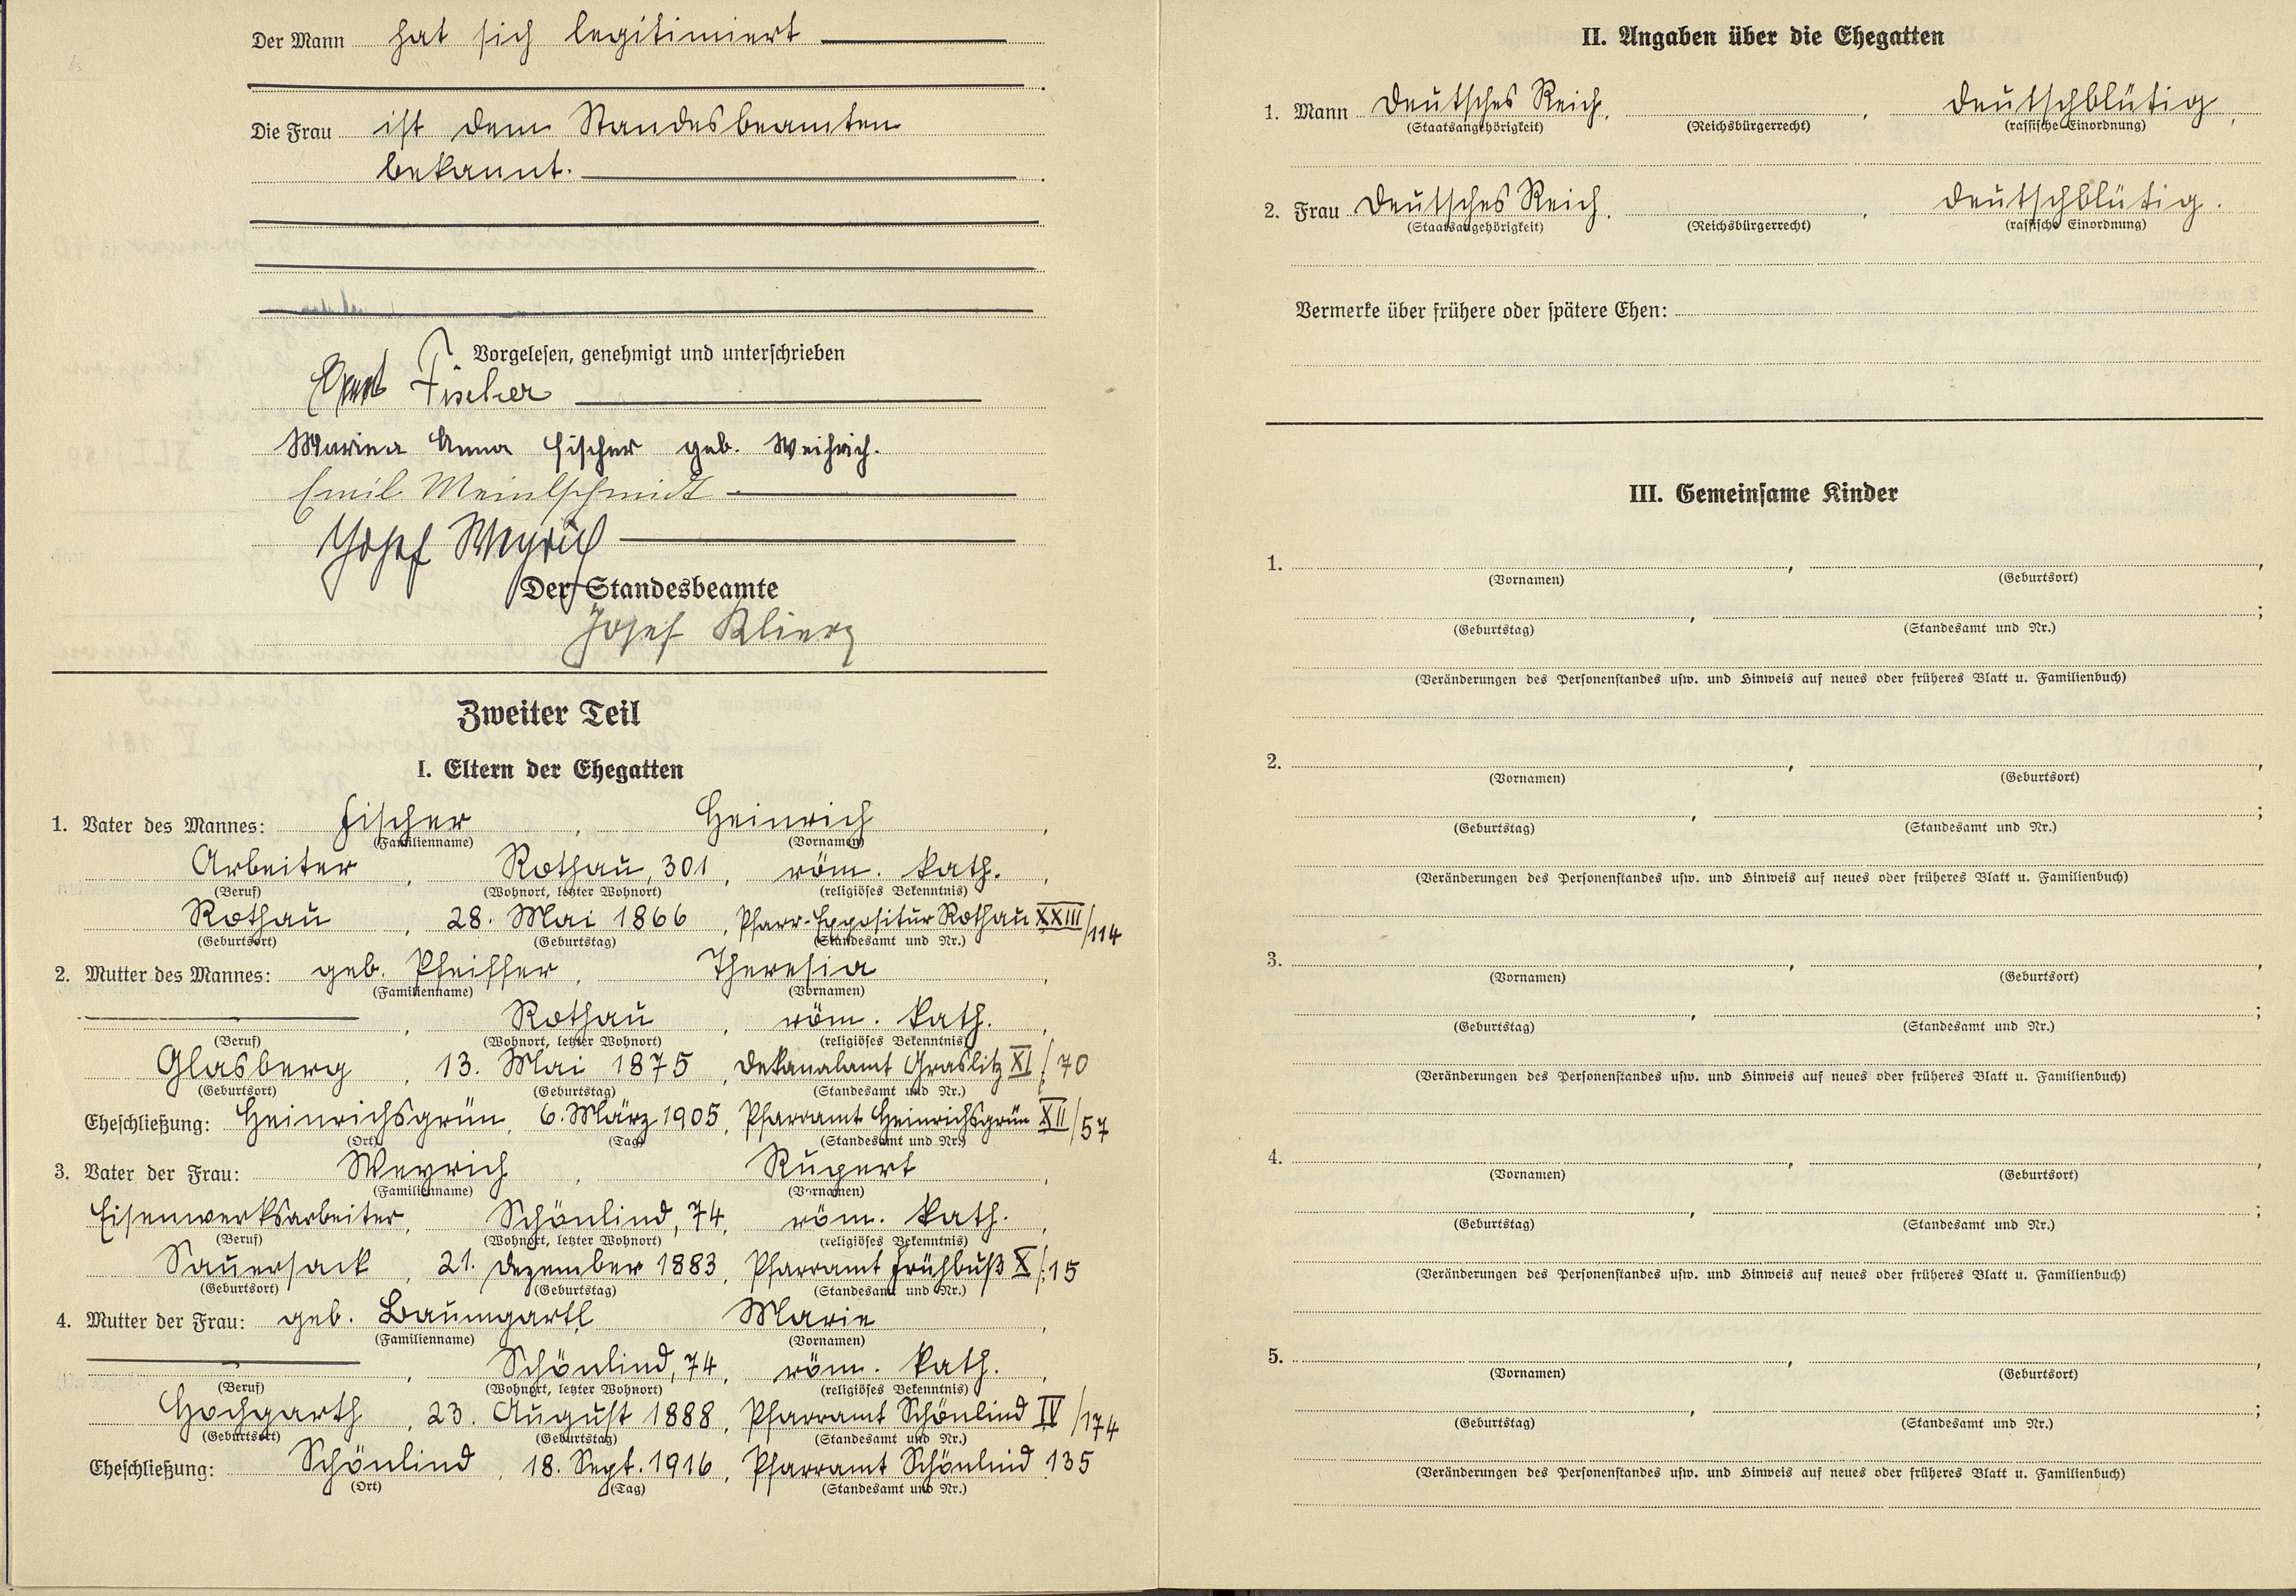 Der Mann hat sich legitimiert
Die Frau ist dem Standesbeamten
bekannt.
Vorgelesen, genehmigt und unterschrieben
Fischer
Marina Anna Fischer geb. Weihrich.
Emil Meinlschmidt
Josef Weyrich
Der Standesbeamte
Josef Klierz
Zweiter Teil
I. Eltern der Ehegatten
1. Vater des Mannes: Fischer, Heinrich,
(Familienname) (Vornamen)
Arbeiter, Rothau, 301, röm. kath.,
(Beruf) (Wohnort, letzter Wohnort) (religiöses Bekenntnis)
Rothau, 28. Mai 1866, Pfarr-Expositur Rothau XXIII/114
(Geburtsort) (Geburtstag) (Standesamt und Nr.)
2. Mutter des Mannes: geb. Pfeiffer, Theresia,
(Familienname) (Vornamen)
, Rothau, röm. kath.,
(Beruf) (Wohnort, letzter Wohnort) (religiöses Bekenntnis)
Glasberg, 13. Mai 1875, Dekanalamt Graslitz XI/70
(Geburtsort) (Geburtstag) (Standesamt und Nr.)
Eheschließung: Heinrichsgrün, 6. März 1905, Pfarramt Heinrichsgrün XII/57
(Ort) (Tag) (Standesamt und Nr.)
3. Vater der Frau: Weyrich, Rupert,
(Familienname) (Vornamen)
Eisenwerksarbeiter, Schönlind, 74, röm. kath.,
(Beruf) (Wohnort, letzter Wohnort) (religiöses Bekenntnis)
Sauersack, 21. Dezember 1883, Pfarramt Frühbuß X/15
(Geburtsort) (Geburtstag) (Standesamt und Nr.)
4. Mutter der Frau: geb. Baumgartl, Marie,
(Familienname) (Vornamen)
, Schönlind, 74, röm. kath.,
(Beruf) (Wohnort, letzter Wohnort) (religiöses Bekenntnis)
Hochgarth, 23. August 1888, Pfarramt Schönlind IV/174
(Geburtsort) (Geburtstag) (Standesamt und Nr.)
Eheschließung: Schönlind, 18. Sept. 1916, Pfarramt Schönlind 135
(Ort) (Tag) (Standesamt und Nr.)
II. Angaben über die Ehegatten
1. Mann Deutsches Reich, , deutschblütig,
(Staatsangehörigkeit) (Reichsbürgerrecht) (rassische Einordnung)
2. Frau Deutsches Reich, , deutschblütig.
(Staatsangehörigkeit) (Reichsbürgerrecht) (rassische Einordnung)
Vermerke über frühere oder spätere Ehen:
III. Gemeinsame Kinder
1. , ,
(Vornamen) (Geburtsort)
, ;
(Geburtstag) (Standesamt und Nr.)
(Veränderungen des Personenstandes usw. und Hinweis auf neues oder früheres Blatt u. Familienbuch)
2. , ,
(Vornamen) (Geburtsort)
, ;
(Geburtstag) (Standesamt und Nr.)
(Veränderungen des Personenstandes usw. und Hinweis auf neues oder früheres Blatt u. Familienbuch)
3. , ,
(Vornamen) (Geburtsort)
, ;
(Geburtstag) (Standesamt und Nr.)
(Veränderungen des Personenstandes usw. und Hinweis auf neues oder früheres Blatt u. Familienbuch)
4. , ,
(Vornamen) (Geburtsort)
, ;
(Geburtstag) (Standesamt und Nr.)
(Veränderungen des Personenstandes usw. und Hinweis auf neues oder früheres Blatt u. Familienbuch)
5. , ,
(Vornamen) (Geburtsort)
, ;
(Geburtstag) (Standesamt und Nr.)
(Veränderungen des Personenstandes usw. und Hinweis auf neues oder früheres Blatt u. Familienbuch)